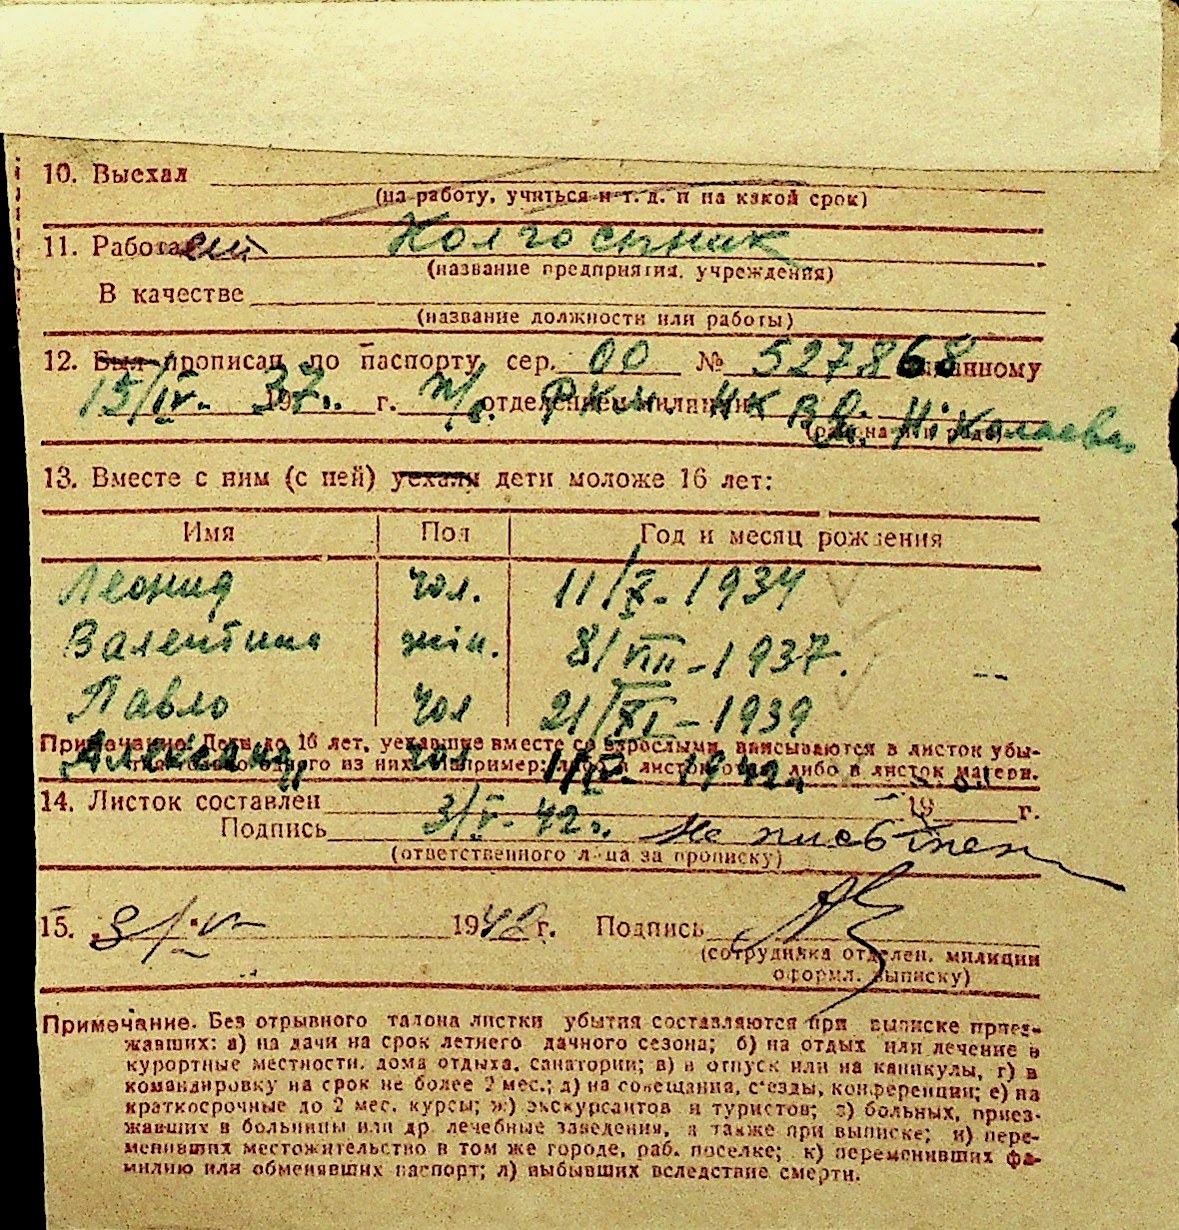 10. Выехал
(на работу, учиться и т. д. и на какой срок)
11. Работает Колгоспник
(название предприятия, учреждения)
В качестве
(название должности или работы)
12. Был прописан по паспорту сер. 00 № 527868 выданному
15/IV. 1937. г. отделением милиции РКМ. НКВД. Ніколаєв
(района или города)
13. Вместе с ним (с ней) уехали дети моложе 16 лет:
Имя Пол Год и месяц рождения
Леонид чол. 11/X-1934
Валентина жін. 8/VIII-1937.
Павло чол 21/XI-1939
Примечание: Дети до 16 лет, уехавшие вместе со взрослыми, вписываются в листок убы-
тия только одного из них. Например: либо в листок отца, либо в листок матери.
Александ чол 1942
14. Листок составлен 19 г.
Подпись 3/V-42г.
(ответственного лица за прописку)
15. 1942 г. Подпись
(сотрудника отделен. милиции
оформл. выписку)
Примечание. Без отрывного талона листки убытия составляются при выписке приез-
жавших: а) на дачи на срок летнего дачного сезона; б) на отдых или лечение в
курортные местности, дома отдыха, санатории; в) в отпуск или на каникулы, г) в
командировку на срок не более 2 мес.; д) на совещания, съезды, конференции; е) на
краткосрочные до 2 мес. курсы; ж) экскурсантов и туристов; з) больных, приез-
жавших в больницы или др. лечебные заведения, а также при выписке; и) пере-
менивших местожительство в том же городе, раб. поселке; к) переменивших фа-
милию или обменявших паспорт; л) выбывших вследствие смерти.